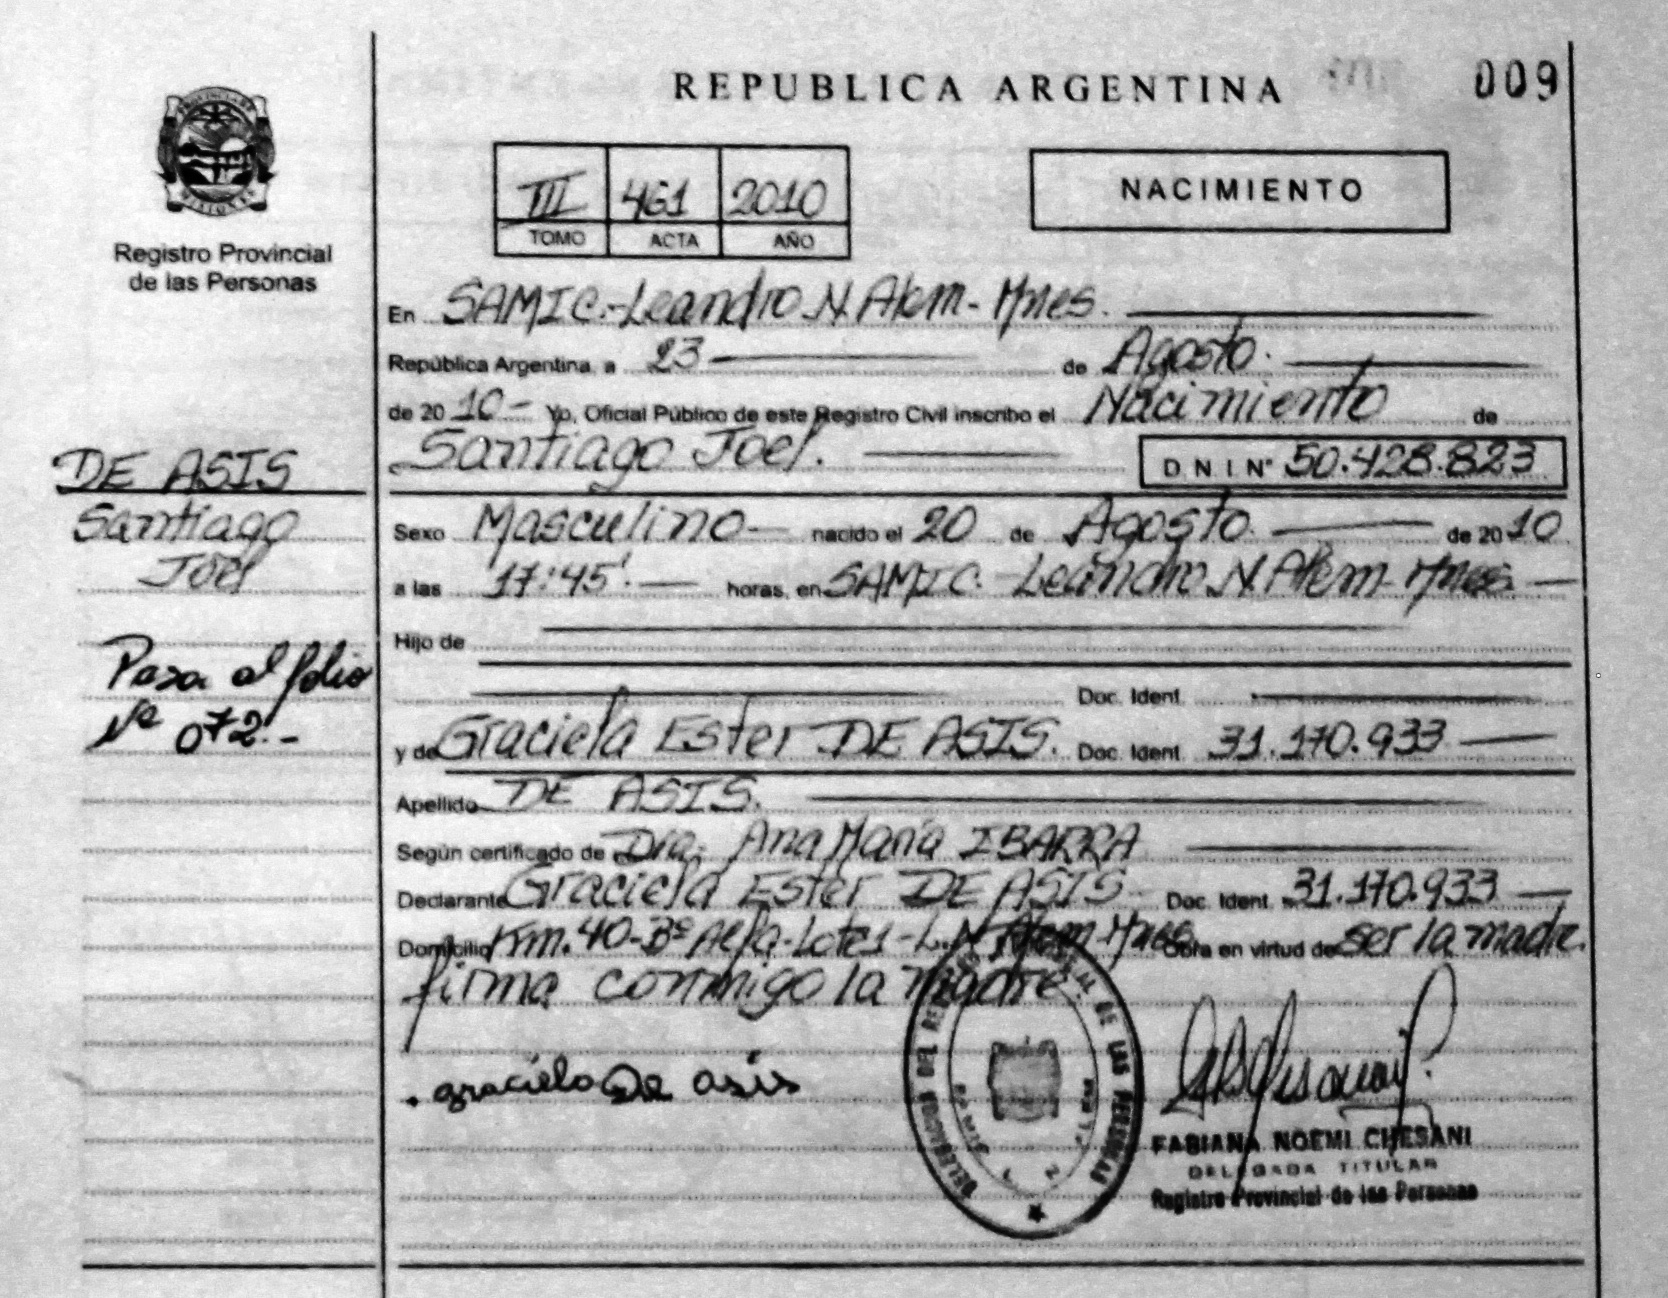 REPUBLICA ARGENTINA
009
III 461 2010
TOMO ACTA AÑO
NACIMIENTO
Registro Provincial
de las Personas
En SAMIC.-Leandro N. Alem- Mnes.
República Argentina, a 23 de Agosto.
de 2010- Yo, Oficial Público de este Registro Civil inscribo el Nacimiento de
Santiago Joel.
D N I Nº 50.428.823
DE ASIS
Santiago
Joel
Sexo Masculino nacido el 20 de Agosto de 2010
a las 17:45'. horas, en SAMIC. Leandro N. Alem- Mnes.
Hijo de
Doc. Ident.
Pasa al folio
Nº 072.-
y de Graciela Ester DE ASIS. Doc. Ident. 31.170.933
Apellido DE ASIS.
Según certificado de Dra. Ana María IBARRA
Declarante Graciela Ester DE ASIS Doc. Ident. 31.170.933
Domicilio Km. 40-Bº Alfa-Lote 1-L.N. Alem-Mnes Obra en virtud de ser la madre.
firma conmigo la madre
graciela De asis
DELEGACION DEL DE LAS PERSONAS
FABIANA NOEMI CHESANI
DELEGADA TITULAR
Registro Provincial de las Personas